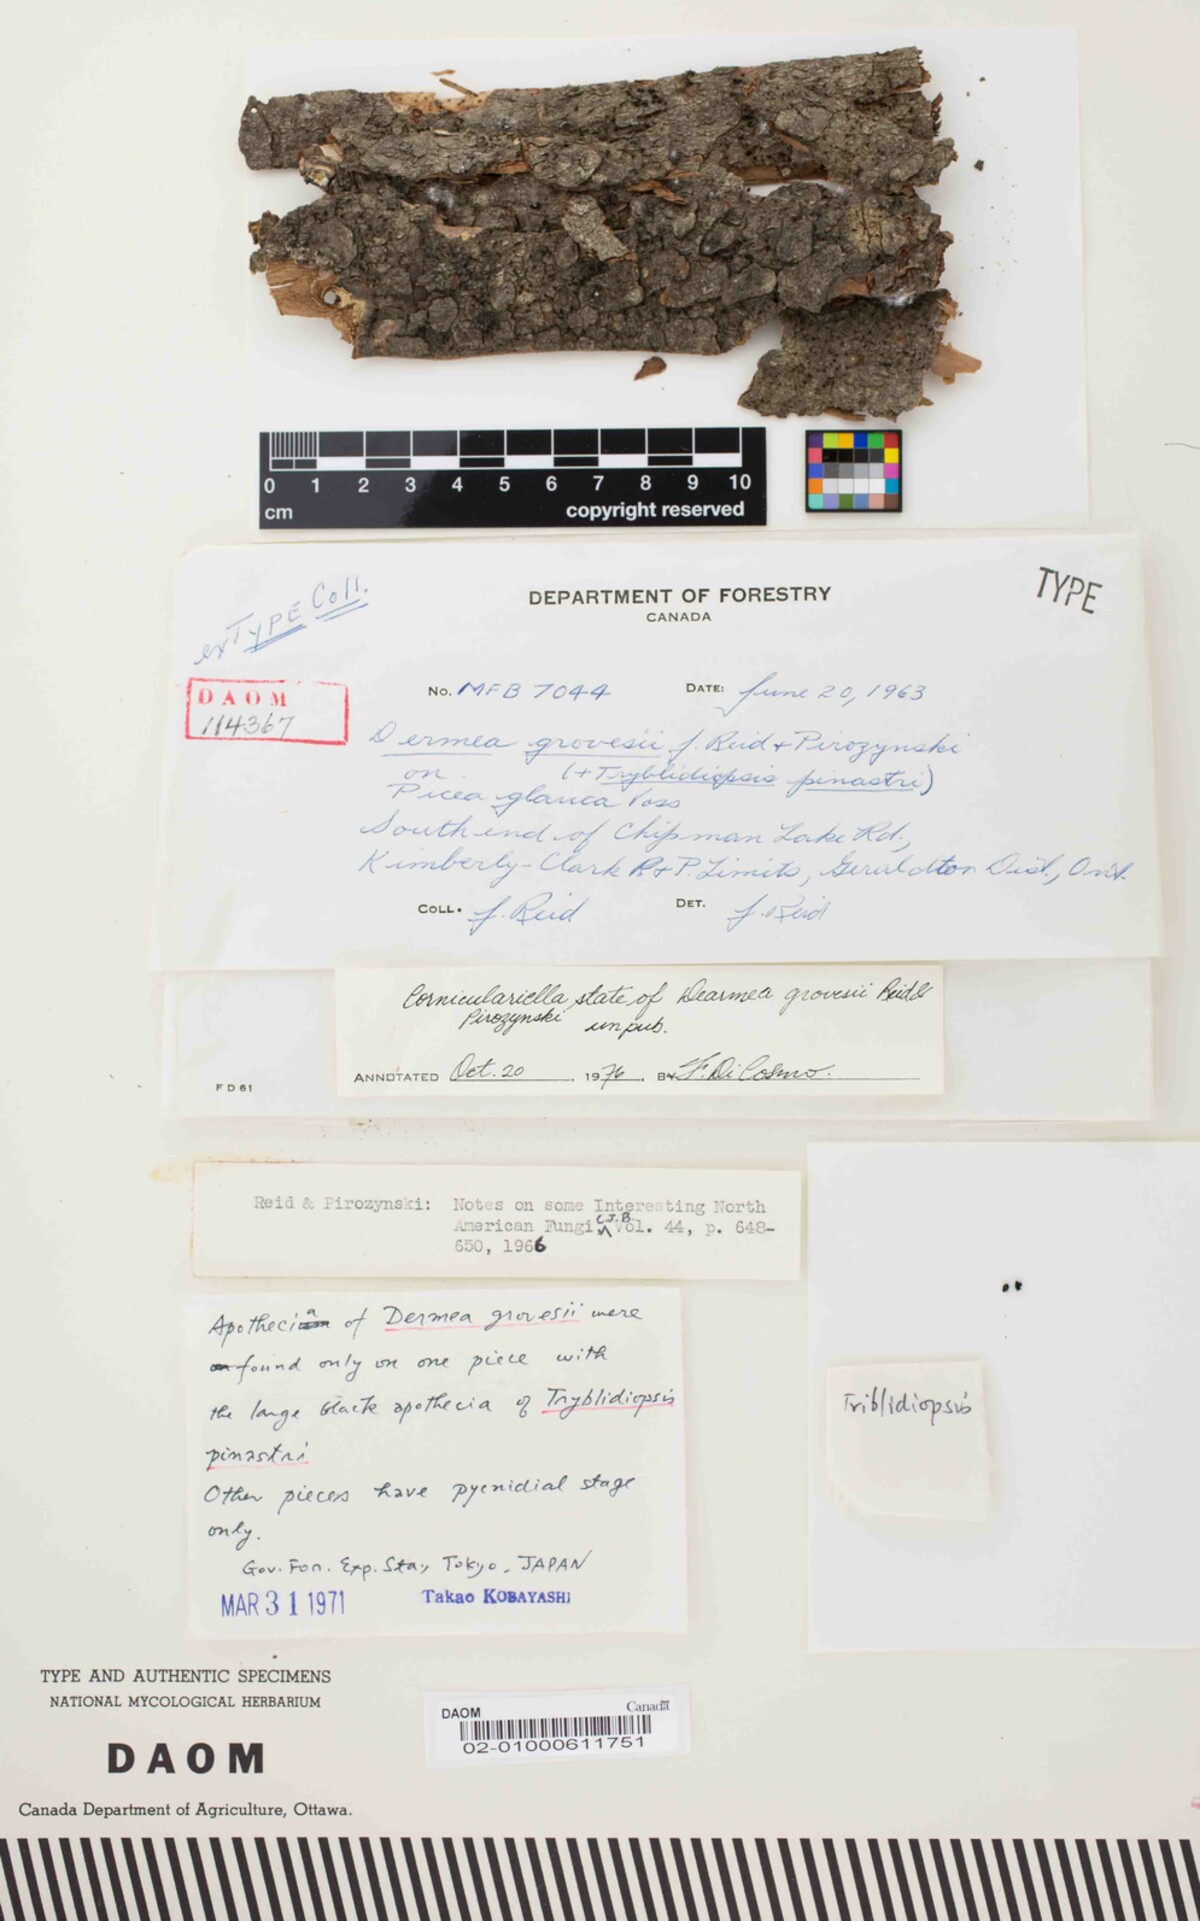 0 1 2 3 4 5 6 7 8 9 10
cm
copyright reserved
ex TYPE Coll.
DEPARTMENT OF FORESTRY
CANADA
TYPE
DAOM
114367
No. MFB 7044 DATE: June 20, 1963
Dermea grovesii J. Reid + Pirozynski
on (+Tryblidiopsis pinastri)
Picea glauca Voss
South end of Chipman Lake Rd.,
Kimberly-Clark P.+P. Limits, Geraldton Dist., Ont.
COLL. J. Reid DET. J. Reid
Corniculariella state of Dearmea grovesii Reid &
Pirozynski unpub.
ANNOTATED Oct. 20 1976. BY F. DiCosmo.
FD61
Reid & Pirozynski: Notes on some Interesting North
American Fungi, C.J.B. Vol. 44, p. 648-
650, 1966
Apothecia of Dermea grovesii were
found only on one piece with
the large black apothecia of Tryblidiopsis
pinastri
Other pieces have pycnidial stage
only.
Gov. For. Exp. Sta., Tokyo, JAPAN
MAR 31 1971 Takao KOBAYASHI
Triblidiopsis
TYPE AND AUTHENTIC SPECIMENS
NATIONAL MYCOLOGICAL HERBARIUM
DAOM
Canada Department of Agriculture, Ottawa.
DAOM Canada
02-01000611751